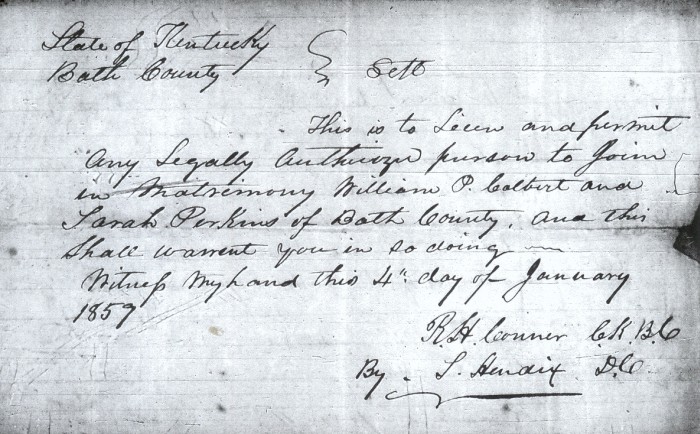 State of Kentucky
Bath County } Sett
This is to Licen and permit
Any Legally Authorize person to Join
in Matrimony William P. Colbert and
Sarah Perkins of Bath County, and this
Shall warrent you in so doing
Witness My hand this 4th day of January
1859
R. H. Conner C.K B.C
By S. Hendix D.C.